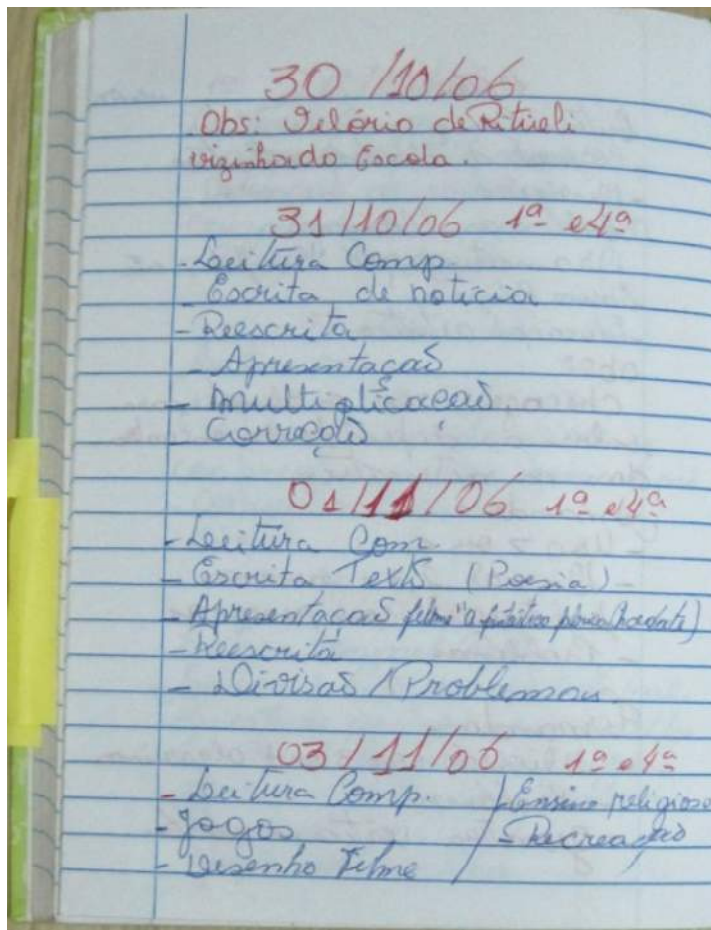 30/10/06
Obs: Velório de
vizinha da Escola.
31/10/06 1ª e 4ª
- Leitura Comp.
- Escrita de notícia
- Reescrita
- Apresentação
- Multiplicação
- Correção
01/11/06 1ª e 4ª
- Leitura Com.
- Escrita Texto (Poesia)
- Apresentação filme "a fantástica fábrica chocolate)
- Reescrita
- Divisão / Problemas
03/11/06 1ª e 4ª
- Leitura Comp. / - Ensino religioso
- Jogos / - Recreação
- Desenho filme /